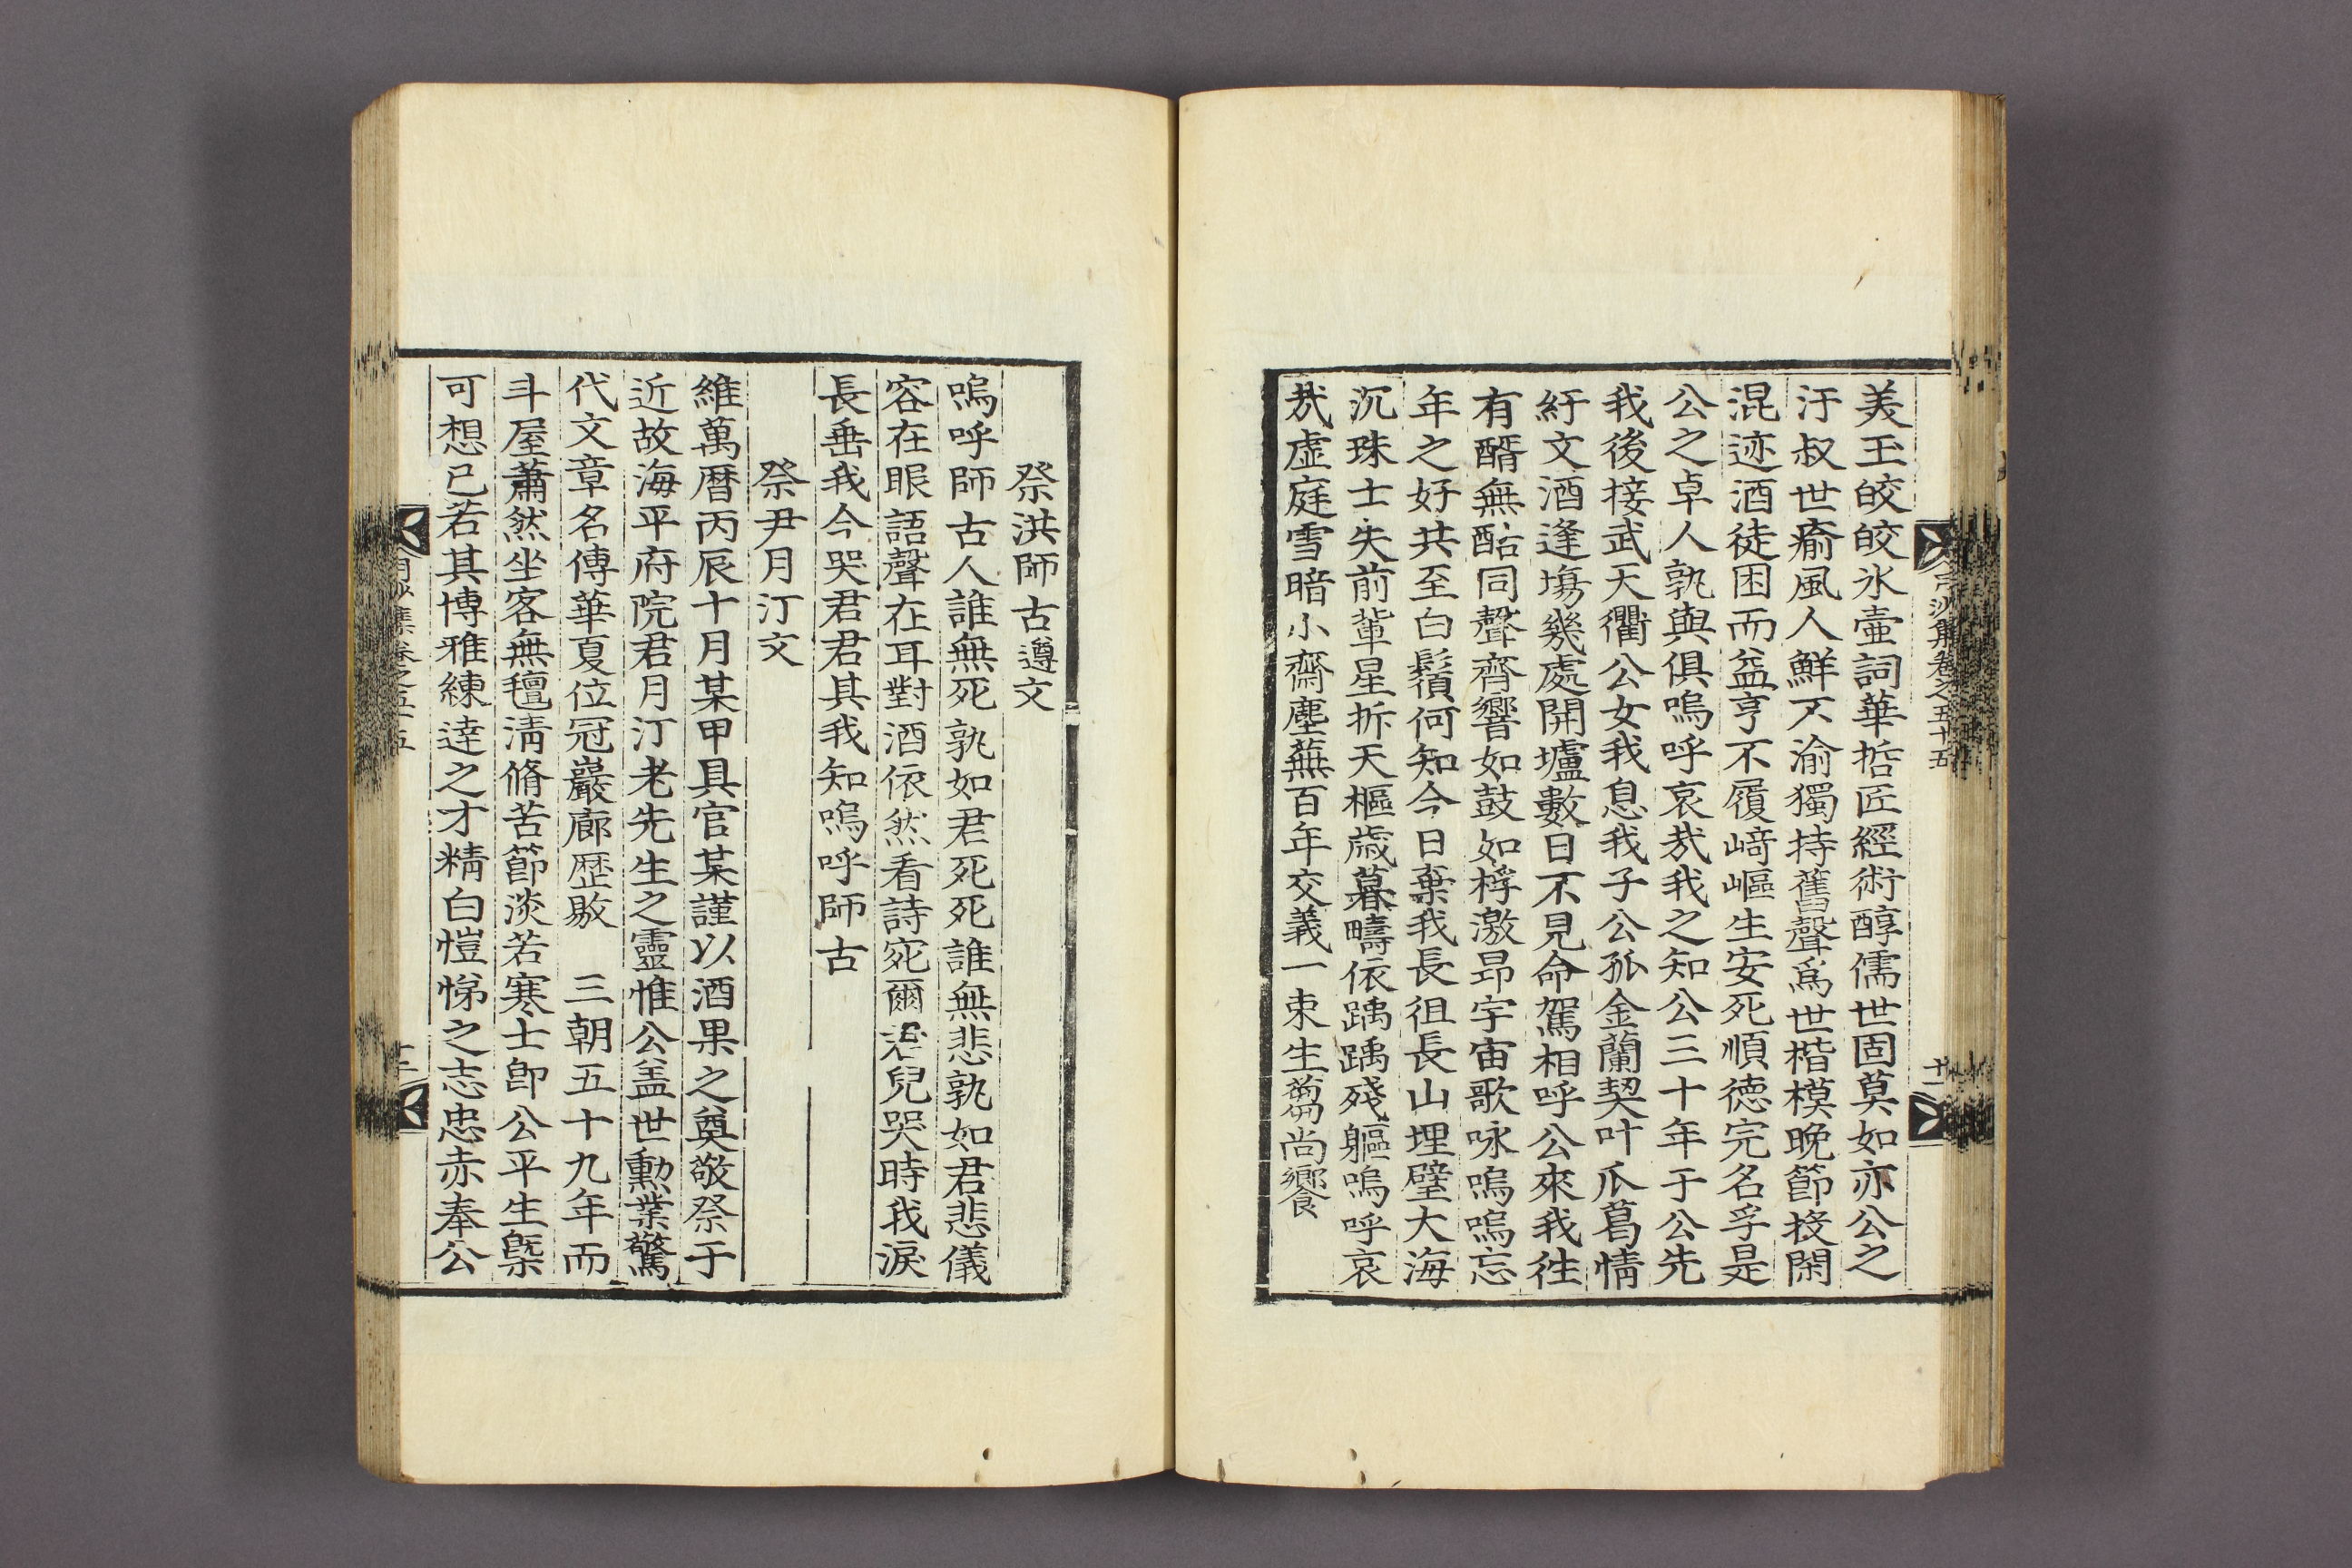 月沙集卷之五十五
十二
美玉皎皎氷壷詞華哲匠經術醇儒世固莫如亦公之
汙叔世瘉風人鮮不渝獨持舊聲爲世楷模晩節投閑
混迹酒徒困而益亨不履崎嶇生安死順德完名孚是
公之卓人孰與俱嗚呼哀㢤我之知公三十年于公先
我後接武天衢公女我息我子公孤金蘭契叶瓜葛情
紆文酒逢塲幾處開壚數日不見命駕相呼公來我徃
有醑無酤同聲齊響如鼓如桴激昻宇宙歌咏嗚嗚忘
年之好共至白鬚何知今日棄我長徂長山埋璧大海
沉珠士失前軰星拆天樞歲暮疇依踽踽殘軀嗚呼哀
㢤虛庭雪暗小齋塵蕪百年交義一束生蒭尚饗
祭洪師古遵文
嗚呼師古人誰無死孰如君死死誰無悲孰如君悲儀
容在眼語聲在耳對酒依然看詩宛爾君兒哭時我淚
長垂我今哭君君其我知嗚呼師古
祭尹月汀文
維萬曆丙辰十月某甲具官某謹以酒果之奠敬祭于
近故海平府院君月汀老先生之靈惟公盖世勳業驚
代文章名傳華夏位冠巖廊歷敭 三朝五十九年而
斗屋蕭然坐客無氊淸脩苦節淡若寒士卽公平生槩
可想已若其博雅練達之才精白愷悌之志忠赤奉公
月沙集卷之五十五
十三